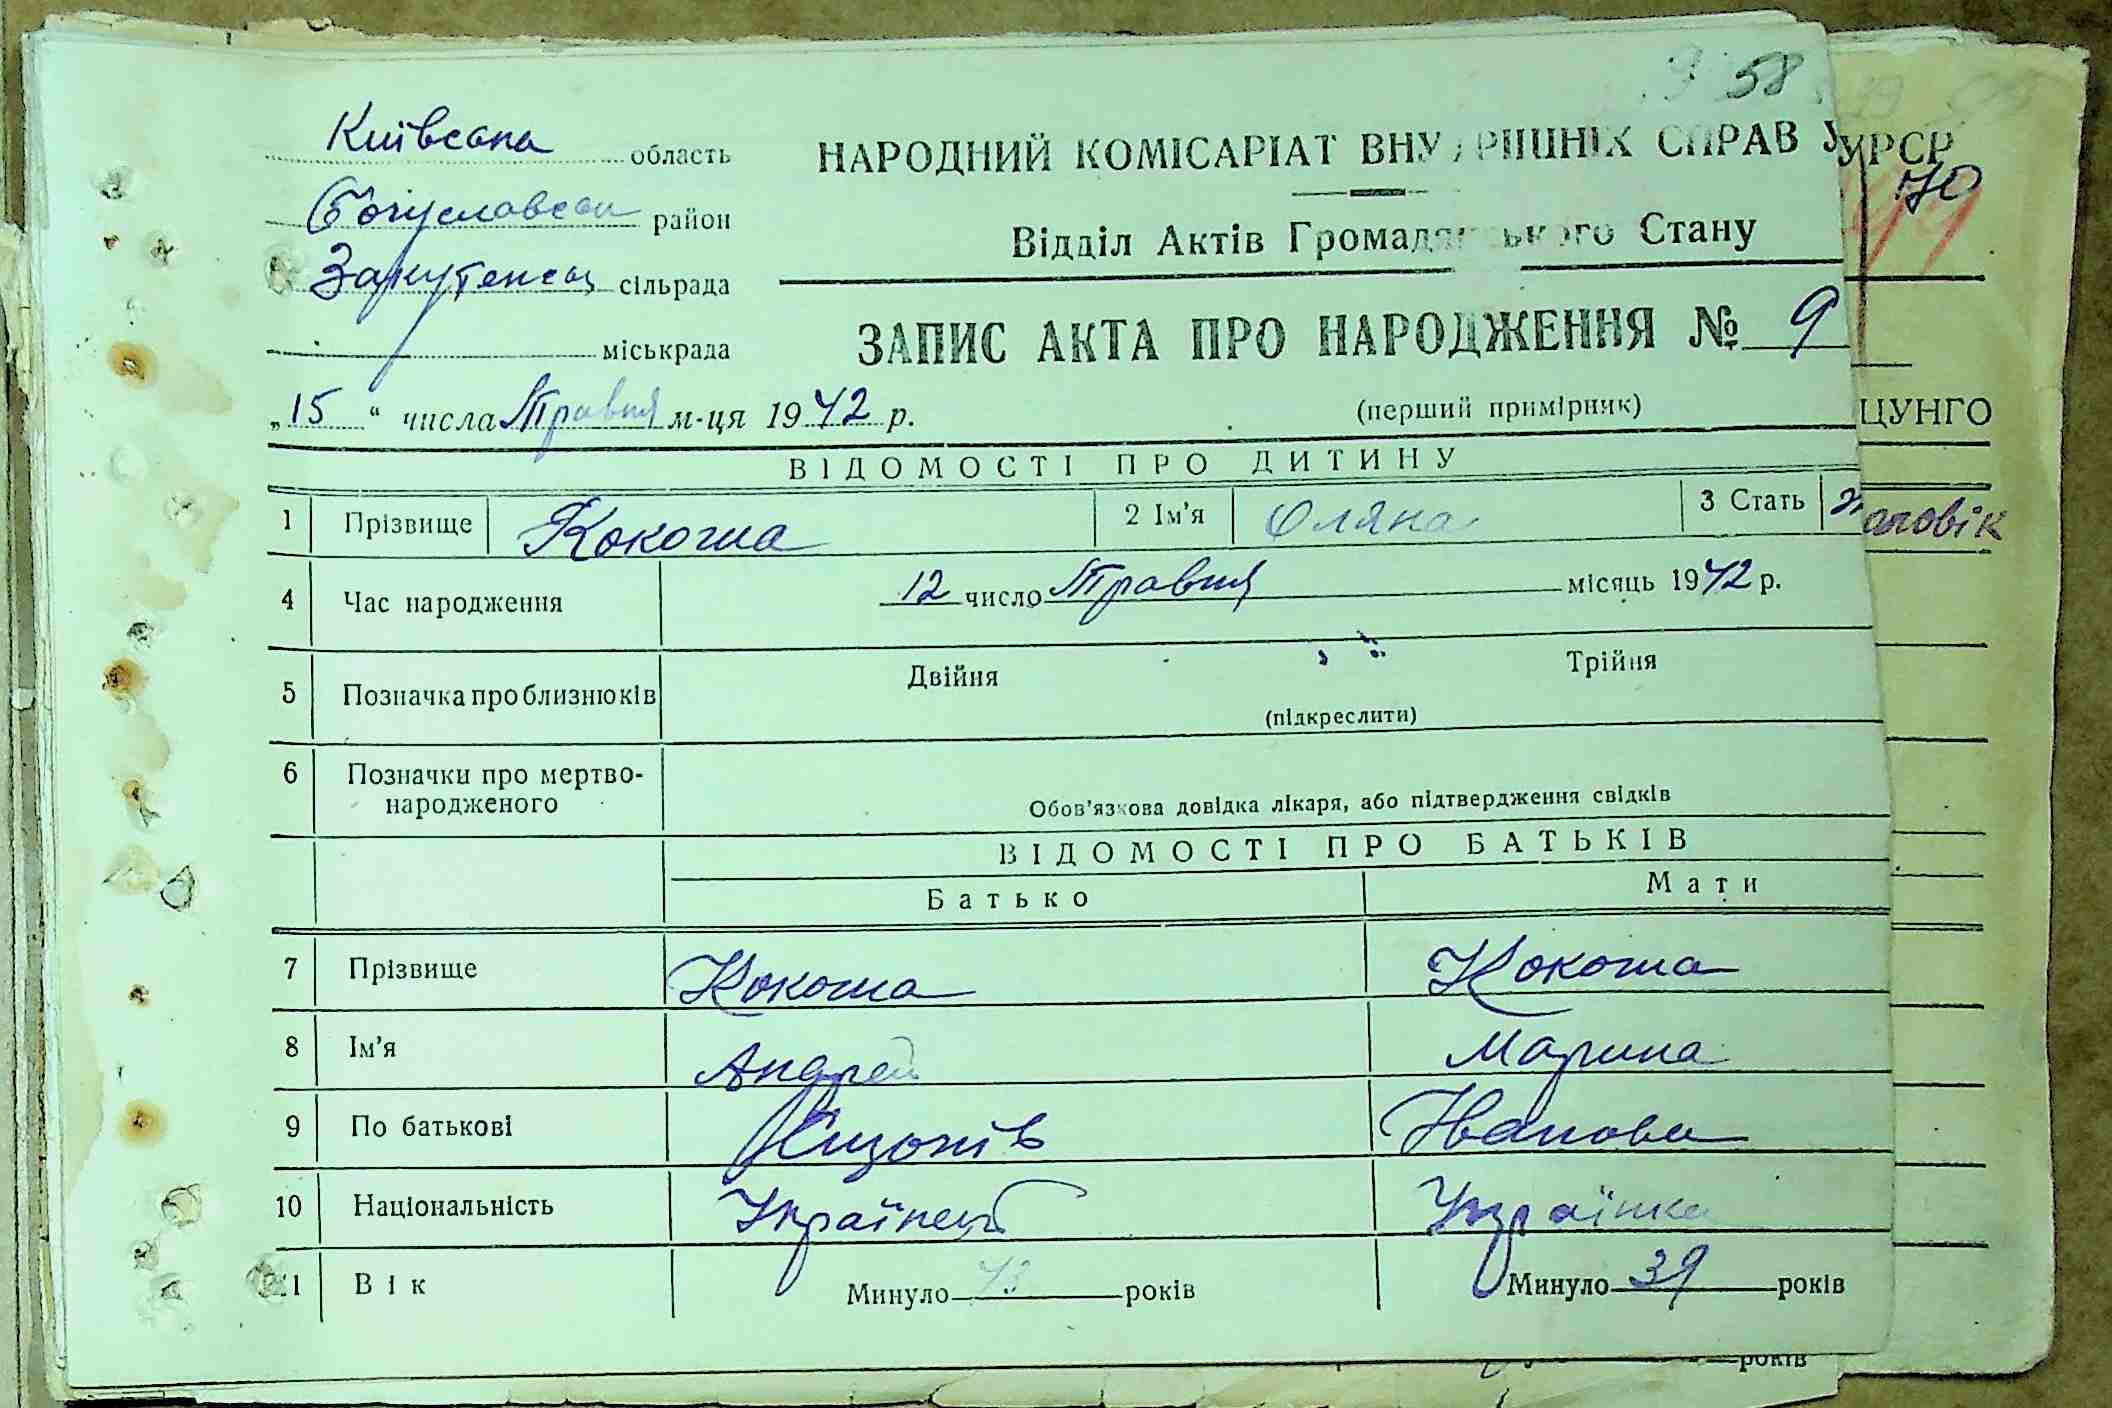 58
Київська область
НАРОДНИЙ КОМІСАРІАТ ВНУТРІШНІХ СПРАВ УРСР
70
Богуславськ район
Відділ Актів Громадянського Стану
Закутенська сільрада
міськрада
ЗАПИС АКТА ПРО НАРОДЖЕННЯ № 9
„15“ числа Травня м-ця 1942 р.
(перший примірник)
ЦУНГО
ВІДОМОСТІ ПРО ДИТИНУ
1 Прізвище Кокоша 2 Ім'я Оляна 3 Стать
оловік
4 Час народження 12 число Травня місяць 1942 р.
5 Позначка про близнюків Двійня Трійня
(підкреслити)
6 Позначки про мертво-
народженого
Обов'язкова довідка лікаря, або підтвердження свідків
ВІДОМОСТІ ПРО БАТЬКІВ
Батько Мати
7 Прізвище Кокоша Кокоша
8 Ім'я Андрей Марина
9 По батькові Іванова
10 Національність Українець Українка
11 Вік Минуло 43 років Минуло 39 років
років